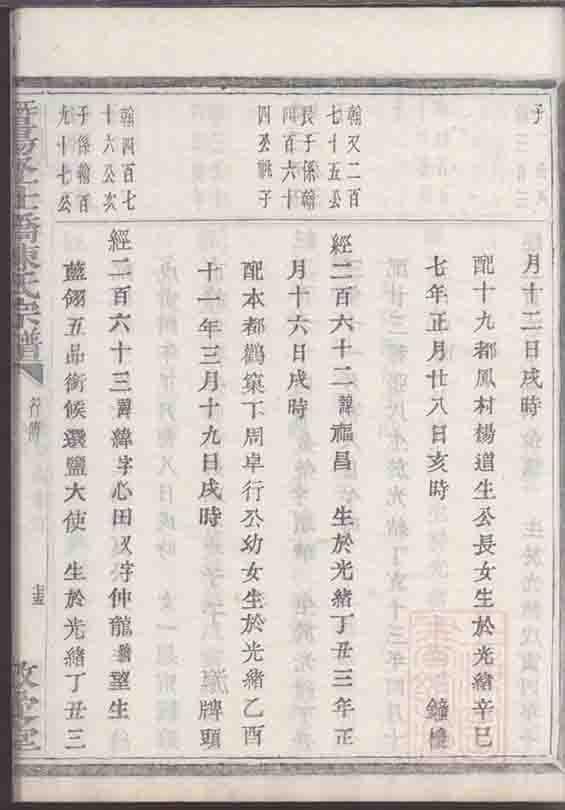 子
月十二日戌時
配十九都鳳村楊道生公長女生於光緒辛巳
七年正月廿八日亥時 鐘樓
翰又二百
七十五公
長子係翰
四百六十
四公祧子
經二百六十二諱福昌 生於光緒丁丑三年正
月十六日戌時
配本都鸛窠下周卓行公幼女生於光緒乙酉
十一年三月十九日戌時 牌頭
翰四百七
十六公次
子係翰百
九十七公
經二百六十三諱緯字心田又字仲龍號望生
藍翎五品銜候選鹽大使 生於光緒丁丑三
陳氏宗譜 行傳